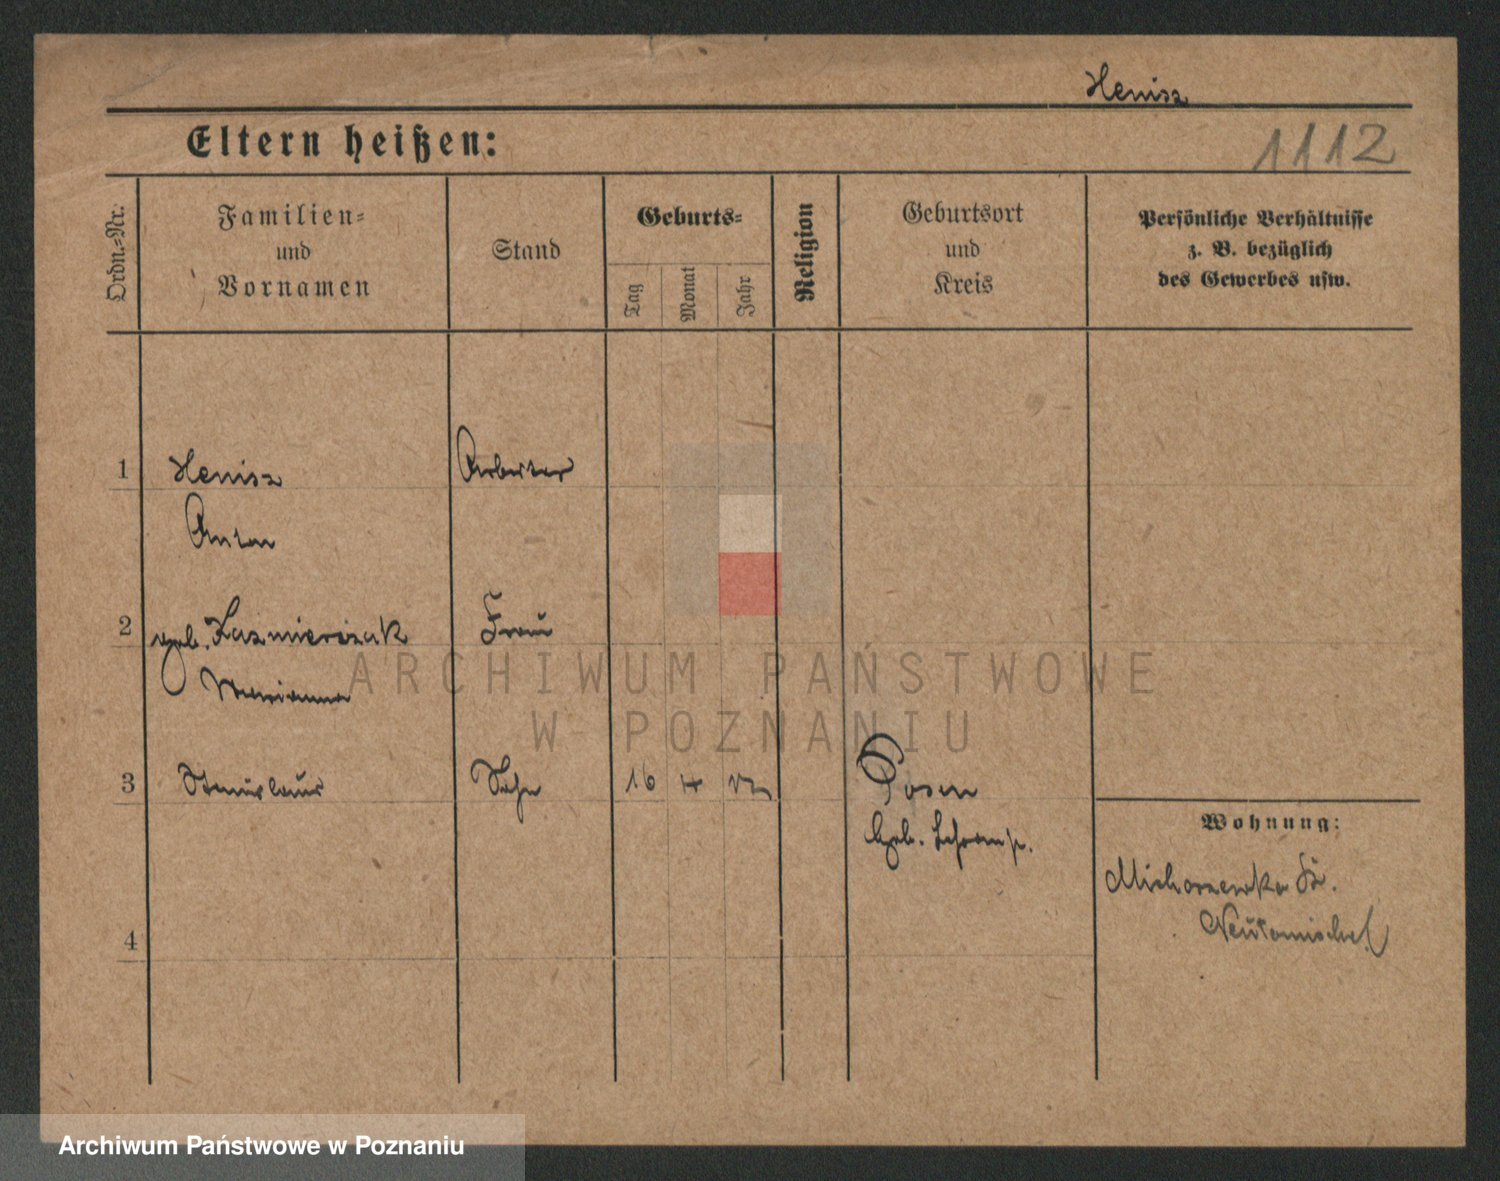 Henisz
Eltern heißen:
1112
Ordn.-Nr.
Familien-
und
Vornamen
Stand
Geburts-
Tag
Monat
Jahr
Religion
Geburtsort
und
Kreis
Persönliche Verhältnisse
z. B. bezüglich
des Gewerbes usw.
1
Henisz
Arbeiter
Anton
2
geb. Kazmierczak
Frau
Marianna
3
Stanislaus
Sohn
16
4
Posen
Geb.
Wohnung:
Neutomischel
4
ARCHIWUM PAŃSTWOWE
W POZNANIU
Archiwum Państwowe w Poznaniu